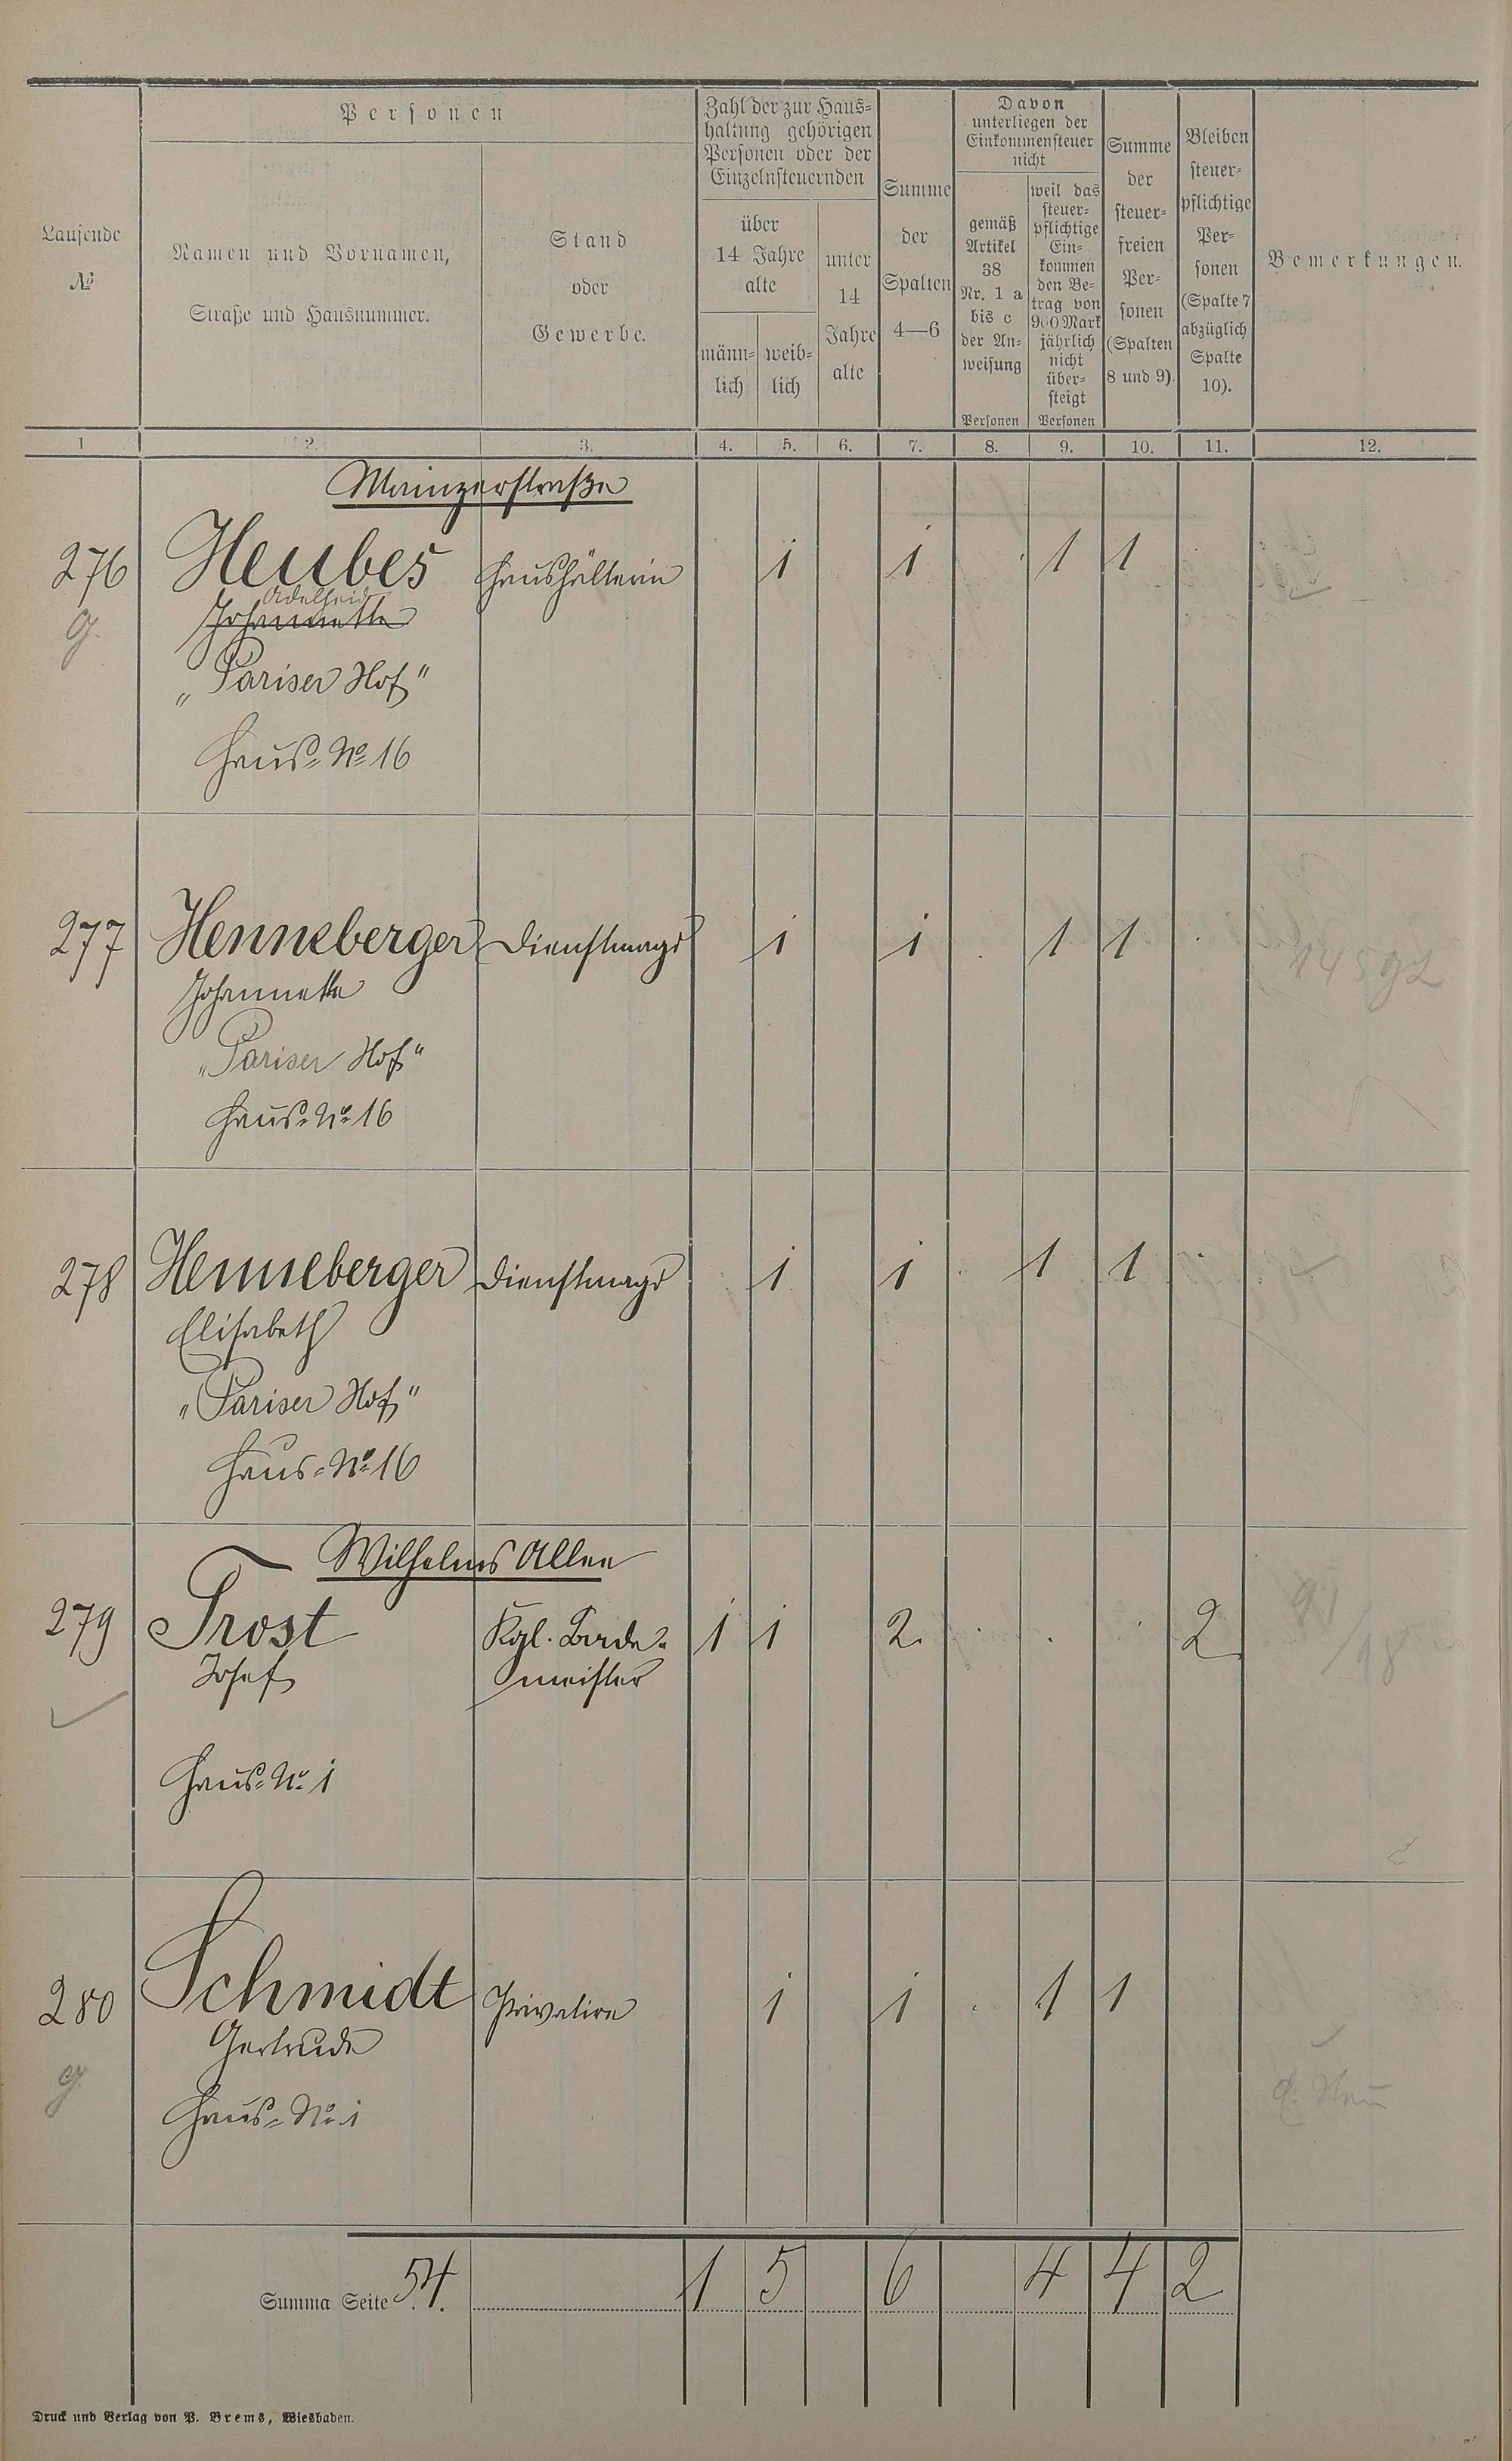 Personen
Zahl der zur Haus=
haltung gehörigen
Personen oder der
Einzelnsteuernden
Davon
unterliegen der
Einkommensteuer
nicht
Laufende
№
Namen und Vornamen,
Straße und Hausnummer.
Stand
oder
Gewerbe.
über
14 Jahre
alte
männ=
lich
weib=
lich
unter
14
Jahre
alte
Summe
der
Spalten
4—6
gemäß
Artikel
38
Nr. 1 a
bis c
der An=
weisung
Personen
weil das
steuer=
pflichtige
Ein=
kommen
den Be=
trag von
900 Mark
jährlich
nicht
über=
steigt
Personen
Summe
der
steuer=
freien
Per=
sonen
(Spalten
8 und 9).
Bleiben
steuer=
pflichtige
Per=
sonen
(Spalte 7
abzüglich
Spalte
10).
Bemerkungen.
1 2. 3. 4. 5. 6. 7. 8. 9. 10. 11. 12.
Mainzerstraße
276 Heubes Haushälterin 1 1 1 1
Adelheid
g. Johannette
„Pariser Hof"
Haus=№ 16
277 Henneberger Dienstmagd 1 1 1 1
Johannette
„Pariser Hof"
Haus=№ 16
278 Henneberger Dienstmagd 1 1 1 1
Elisabeth
„Pariser Hof"
Haus=№ 16
Wilhelms Allee
279 Trost Kgl. Bade= 1 1 2. 2
Josef meister
Haus=№ 1
280 Schmidt Privatire 1 1 1 1
Gertrude
g.
Haus=№ 1
Summa Seite 54. 1 5 6 4 4 2
Druck und Verlag von P. Brems, Wiesbaden.